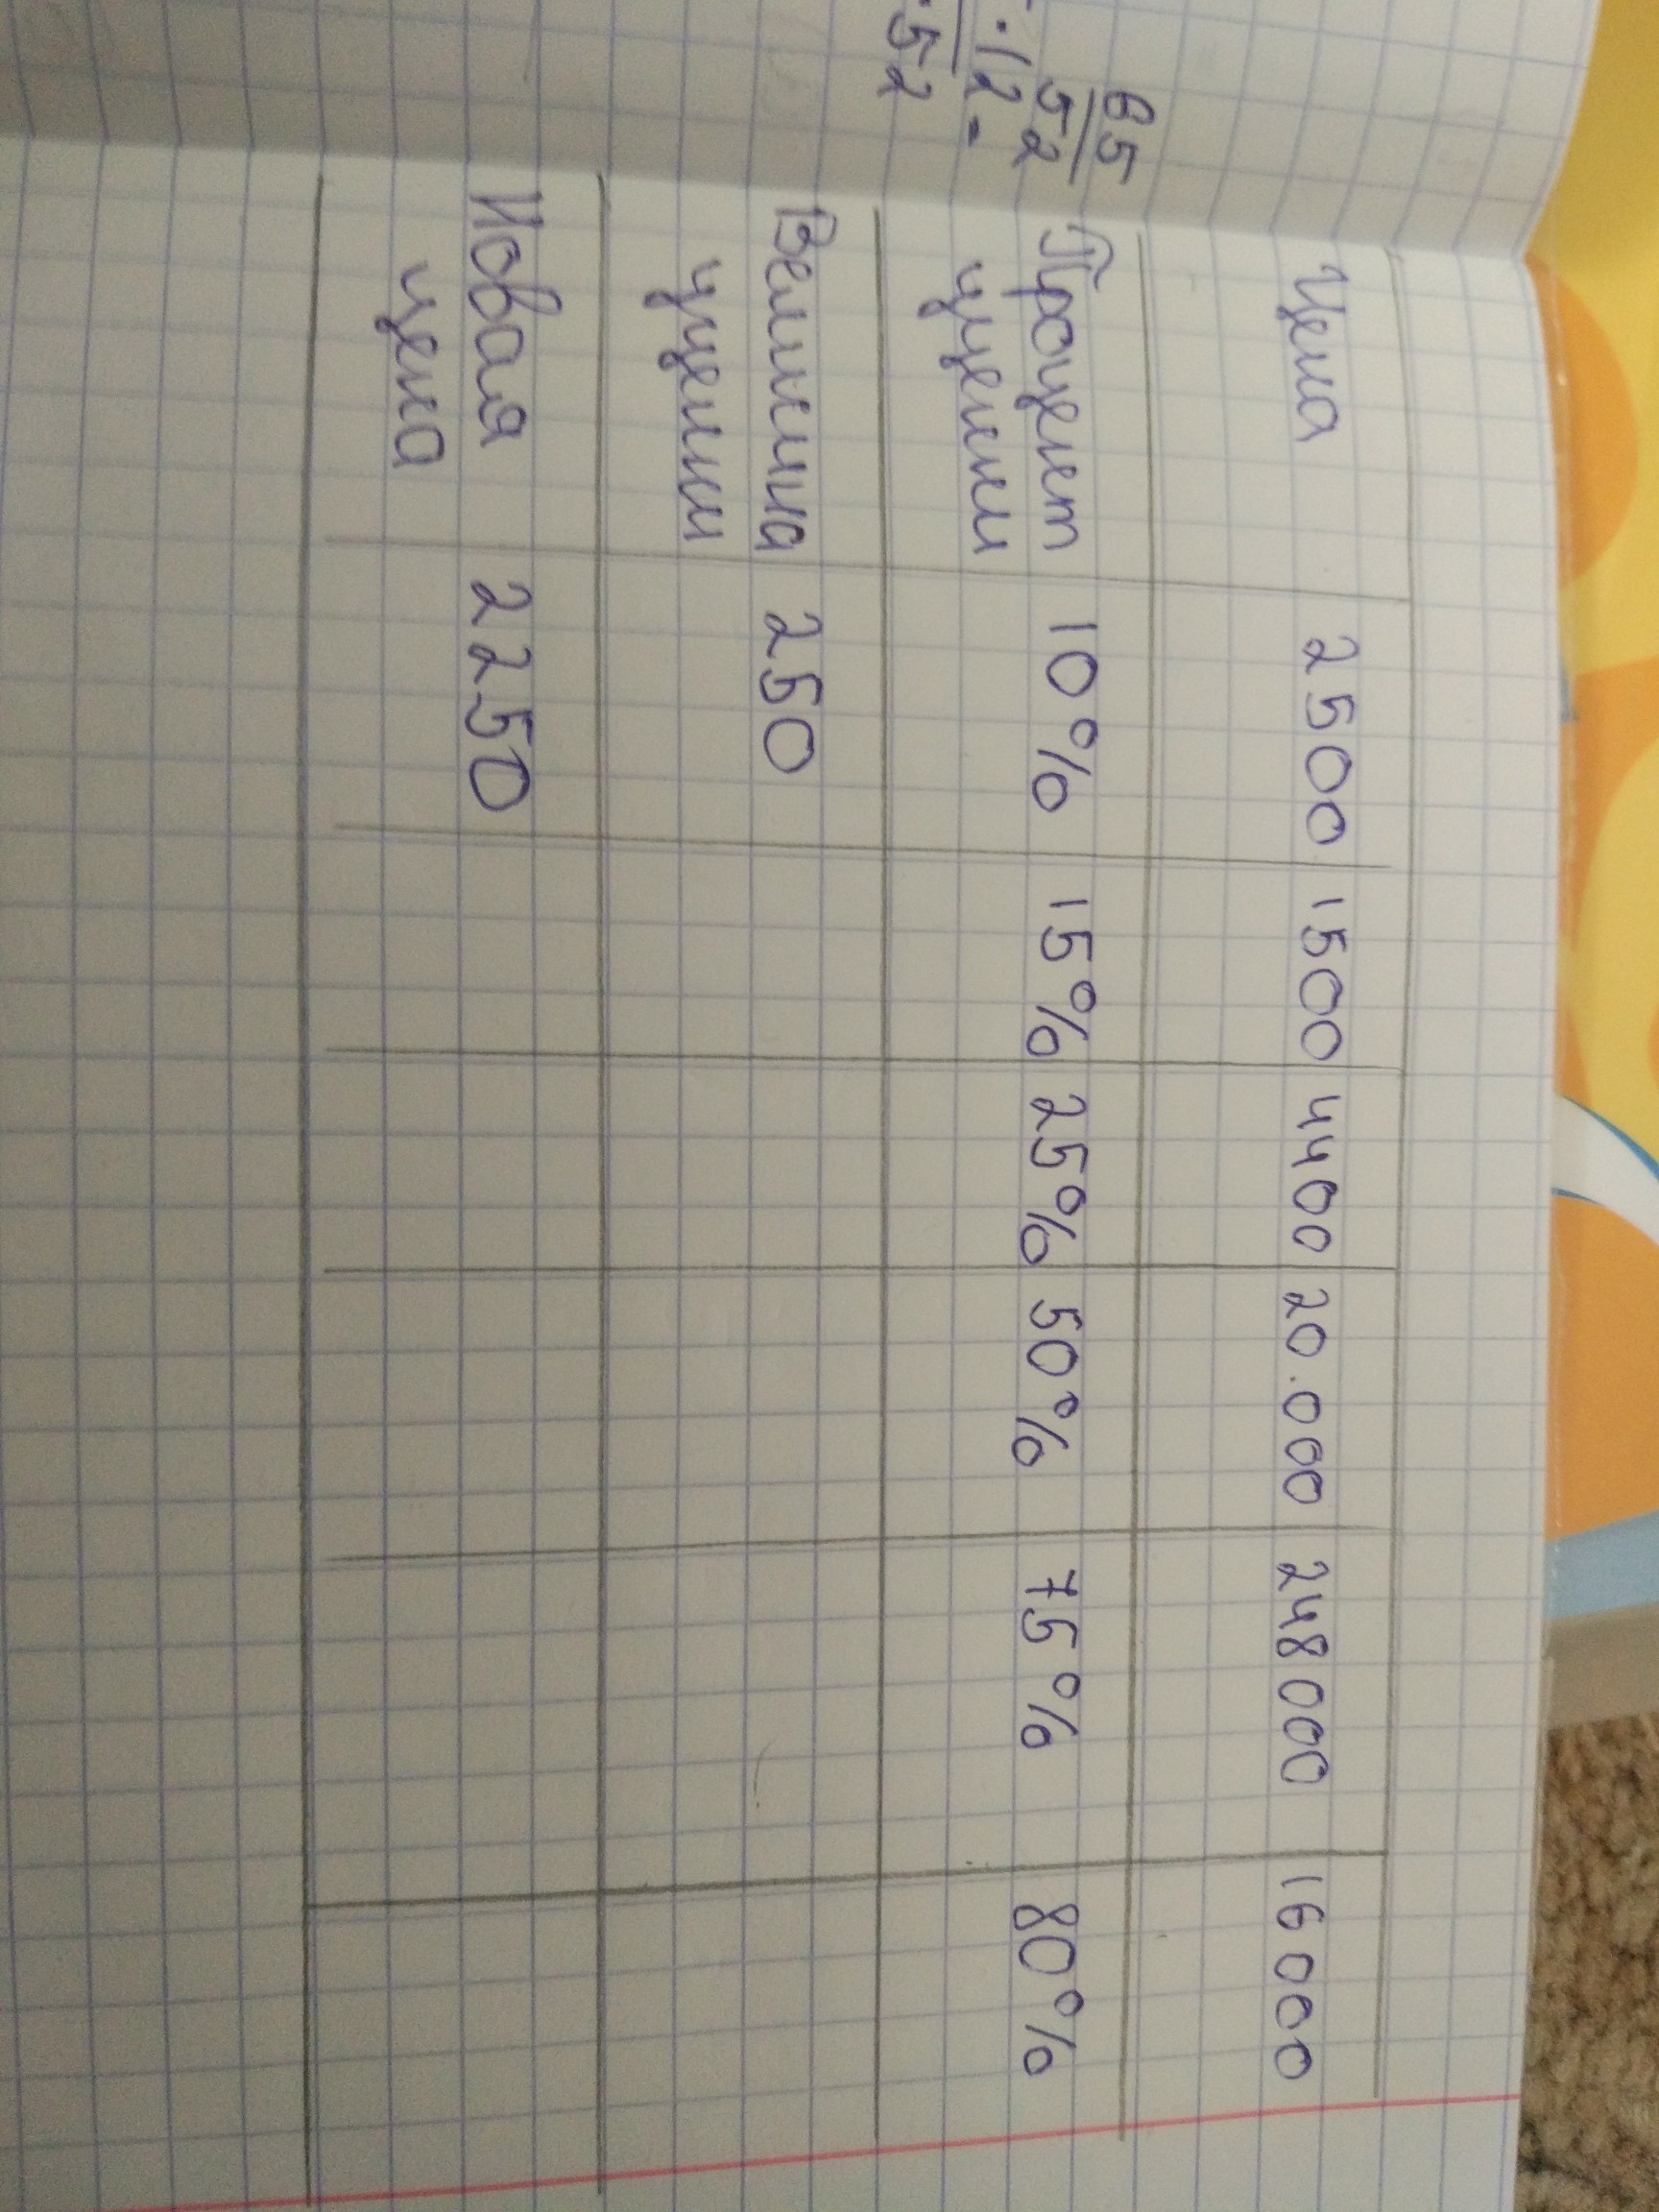 65
52
· 12 -
· 52
Цена 2500 1500 4400 20.000 248000 16000
Процент 10% 15% 25% 50% 75% 80%
уценки
Величина 250
уценки
Новая 2250
цена